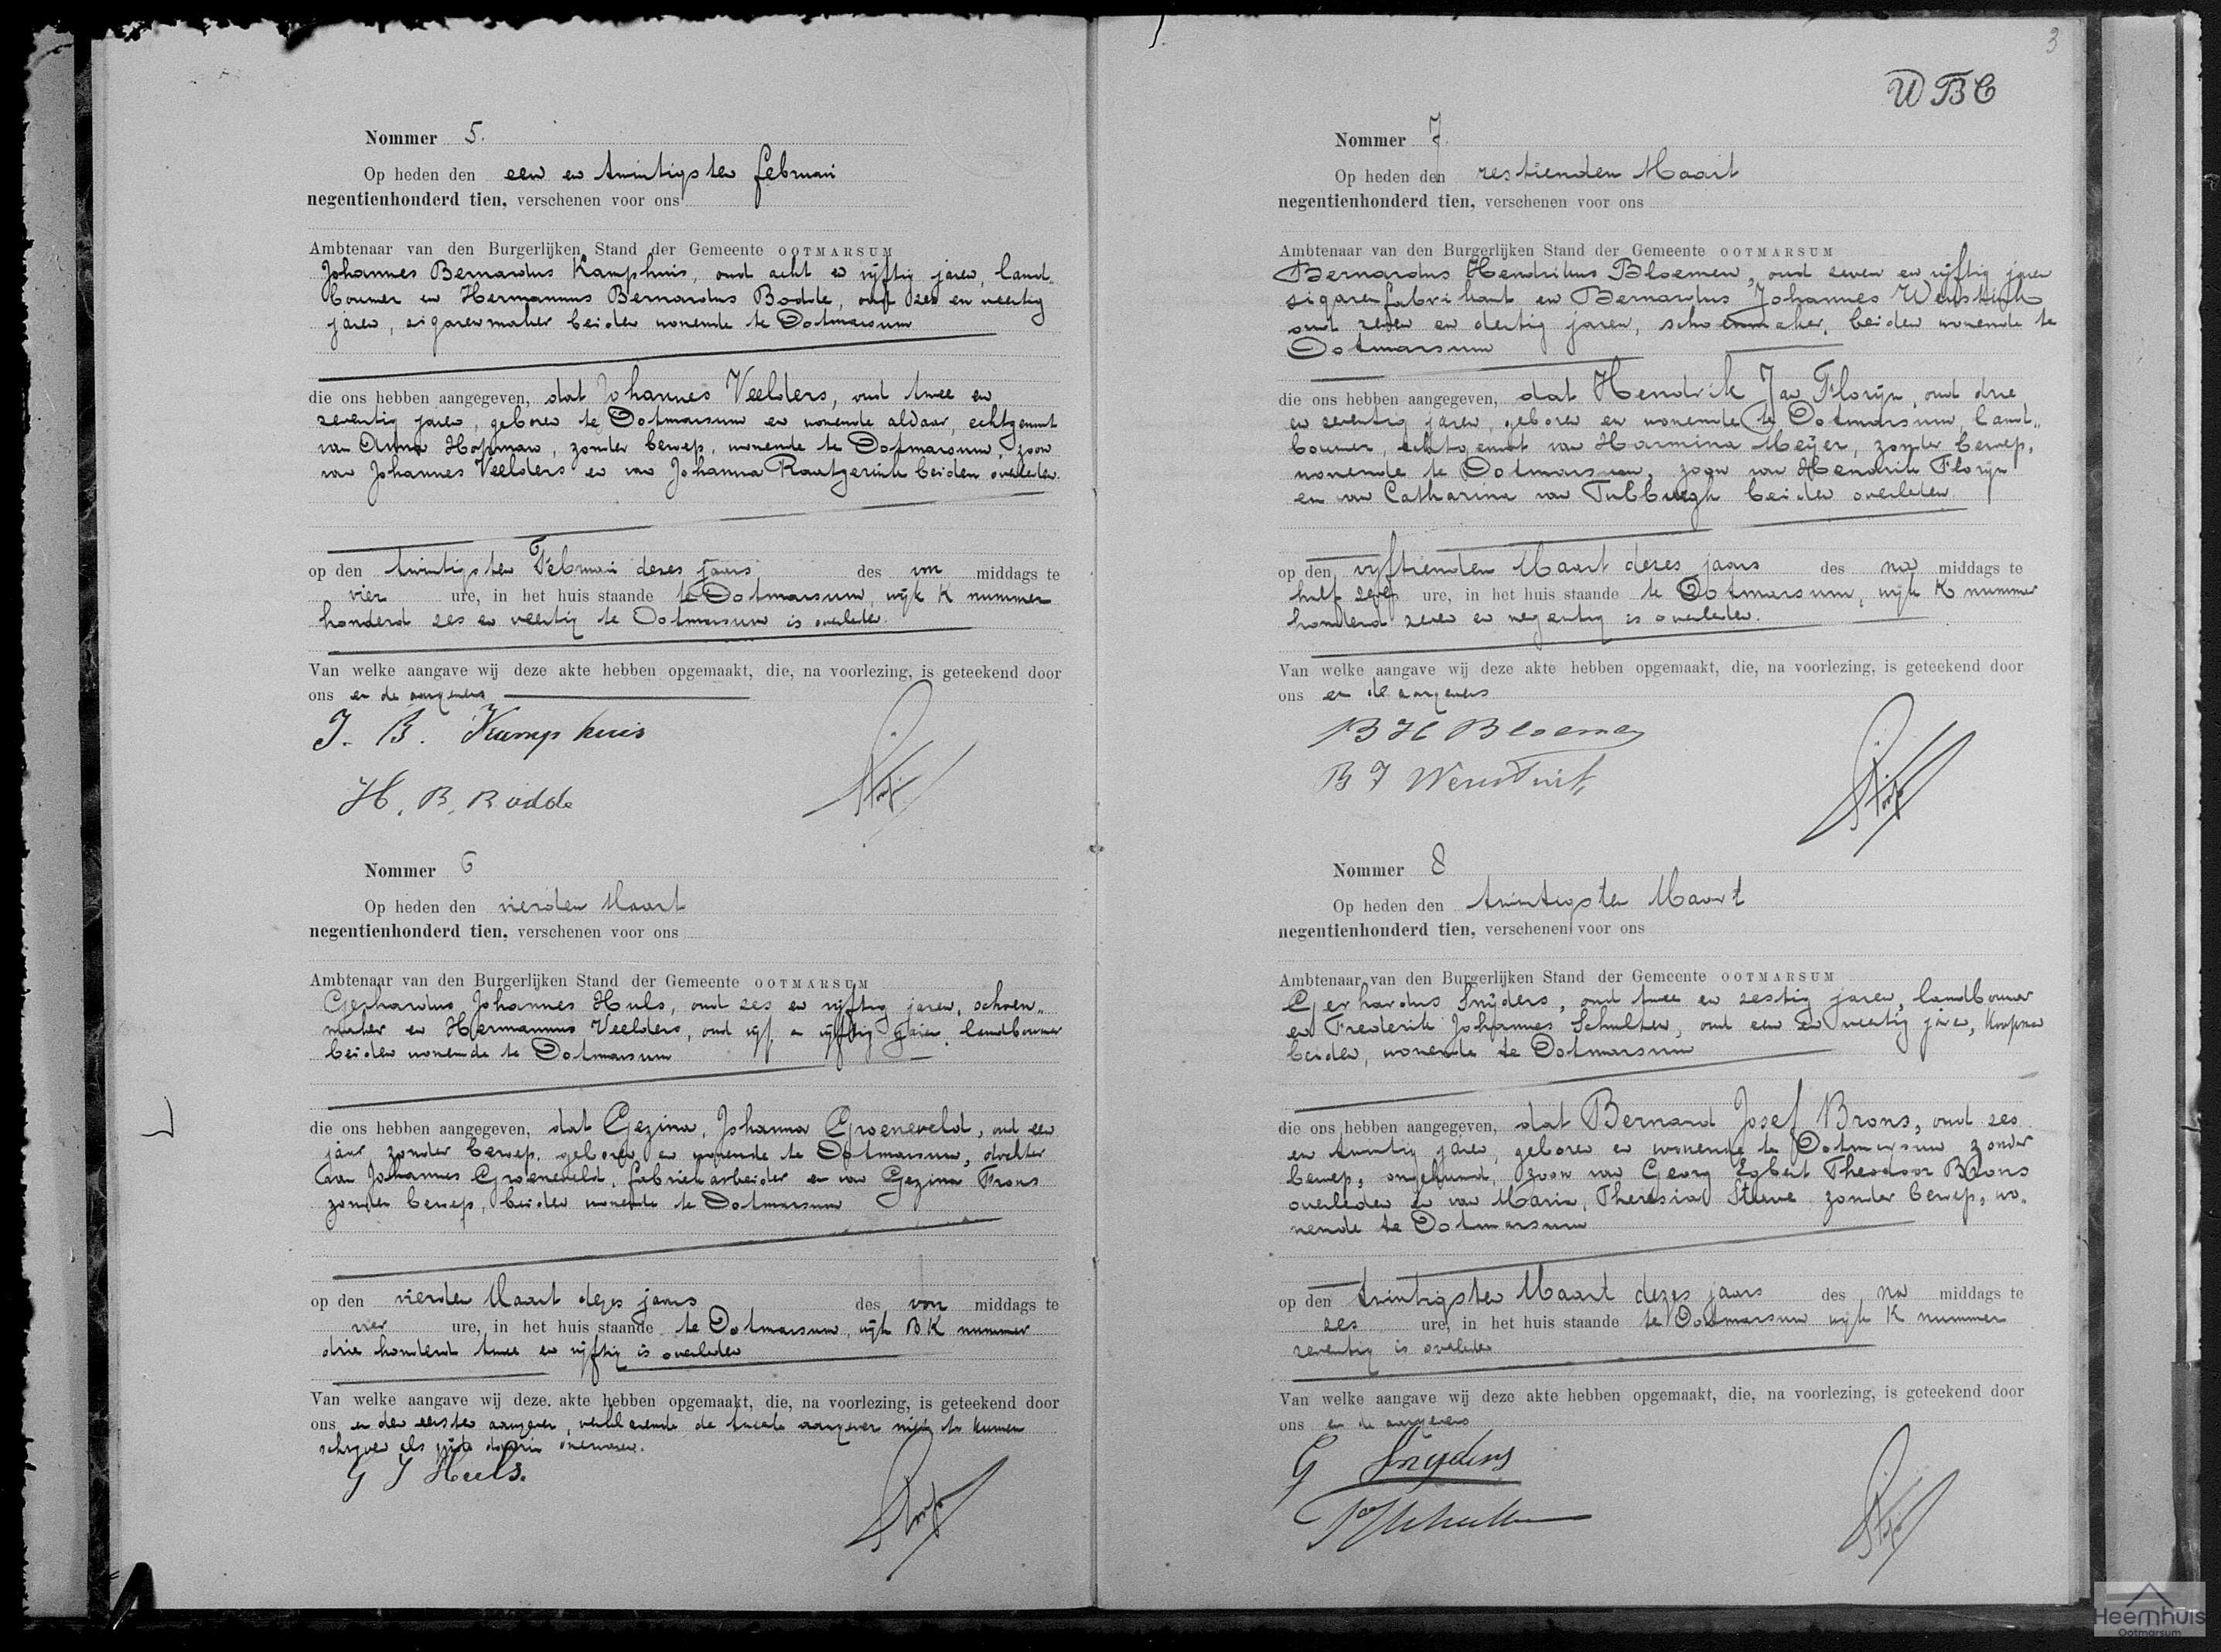 Nommer 5.
Op heden den een en twintigsten februari
negentienhonderd tien, verschenen voor ons
Ambtenaar van den Burgerlijken Stand der Gemeente OOTMARSUM
Johannes Bernardus Kamphuis, oud acht en vijftig jaren, land„
bouwer en Hermannus Bernardus Bodde, oud zes en veertig
jaren, sigarenmaker beiden wonende te Ootmarsum
die ons hebben aangegeven, dat Johannes Veelders, oud twee en
zeventig jaren, geboren te Ootmarsum en wonende aldaar, echtgenoot
van Anna Hofman, zonder beroep, wonende te Ootmarsum, zoon
van Johannes Veelders en van Johanna beiden overleden.
op den twintigsten Februari dezes jaars des voor middags te
vier ure, in het huis staande te Ootmarsum, wijk K nummer
honderd zes en veertig te Ootmarsum is overleden.
Van welke aangave wij deze akte hebben opgemaakt, die, na voorlezing, is geteekend door
ons en de aangevers
J. B. Kamphuis
H. B. Bodde
Nommer 6
Op heden den vierden Maart
negentienhonderd tien, verschenen voor ons
Ambtenaar van den Burgerlijken Stand der Gemeente OOTMARSUM
Gerhardus Johannes Huls, oud zes en vijftig jaren, schoen„
maker en Hermannus Veelders, oud vijf en vijftig jaren, landbouwer
beiden wonende te Ootmarsum
die ons hebben aangegeven, dat Gezina Johanna Groeneveld, oud een
jaar zonder beroep, geboren en wonende te Ootmarsum, dochter
van Johannes Groeneveld, fabriekarbeider en van Gezina Frons
zonder beroep, beiden wonende te Ootmarsum
op den vierden Maart dezes jaars des voor middags te
vier ure, in het huis staande te Ootmarsum, wijk BK nummer
drie honderd twee en vijftig is overleden
Van welke aangave wij deze akte hebben opgemaakt, die, na voorlezing, is geteekend door
ons en den eersten aangever, verklarende de tweede aangever niet te kunnen
schrijven als zijnde daarin onervaren.
G J Huls.
3
WBC
Nommer 7.
Op heden den zestienden Maart
negentienhonderd tien, verschenen voor ons
Ambtenaar van den Burgerlijken Stand der Gemeente OOTMARSUM
Bernardus Hendrikus Bloemen, oud zeven en vijftig jaren
sigarenfabrikant en Bernardus Johannes
oud zeven en dertig jaren, schoenmaker, beiden wonende te
Ootmarsum
die ons hebben aangegeven, dat Hendrik Jan Florijn, oud drie
en zeventig jaren, geboren en wonende te Ootmarsum, land„
bouwer, echtgenoot van Harmina Meijer, zonder beroep,
wonende te Ootmarsum, zoon van Hendrik Florijn
en van Catharina van Tubbergh beiden overleden
op den vijftienden Maart dezes jaars des na middags te
half zeven ure, in het huis staande te Ootmarsum, wijk K nummer
honderd zeven en negentig is overleden.
Van welke aangave wij deze akte hebben opgemaakt, die, na voorlezing, is geteekend door
ons en de aangevers
B H Bloemen
B J
Nommer 8
Op heden den twintigsten Maart
negentienhonderd tien, verschenen voor ons
Ambtenaar van den Burgerlijken Stand der Gemeente OOTMARSUM
Gerhardus Snijders, oud twee en zestig jaren, landbouwer
en Frederik Johannes Schulten, oud een en veertig jaren, koopman
beiden, wonende te Ootmarsum
die ons hebben aangegeven, dat Bernard Josef Brons, oud zes
en twintig jaren, geboren en wonende te Ootmarsum zonder
beroep, ongehuwd, zoon van Georg Egbert Theodoor Brons
overleden en van Maria Theresia Steuve zonder beroep, wo„
nende te Ootmarsum
op den twintigsten Maart dezes jaars des na middags te
zes ure, in het huis staande te Ootmarsum wijk K nummer
zeventig is overleden
Van welke aangave wij deze akte hebben opgemaakt, die, na voorlezing, is geteekend door
ons en de aangevers
G Snijders
Heemhuis
Ootmarsum